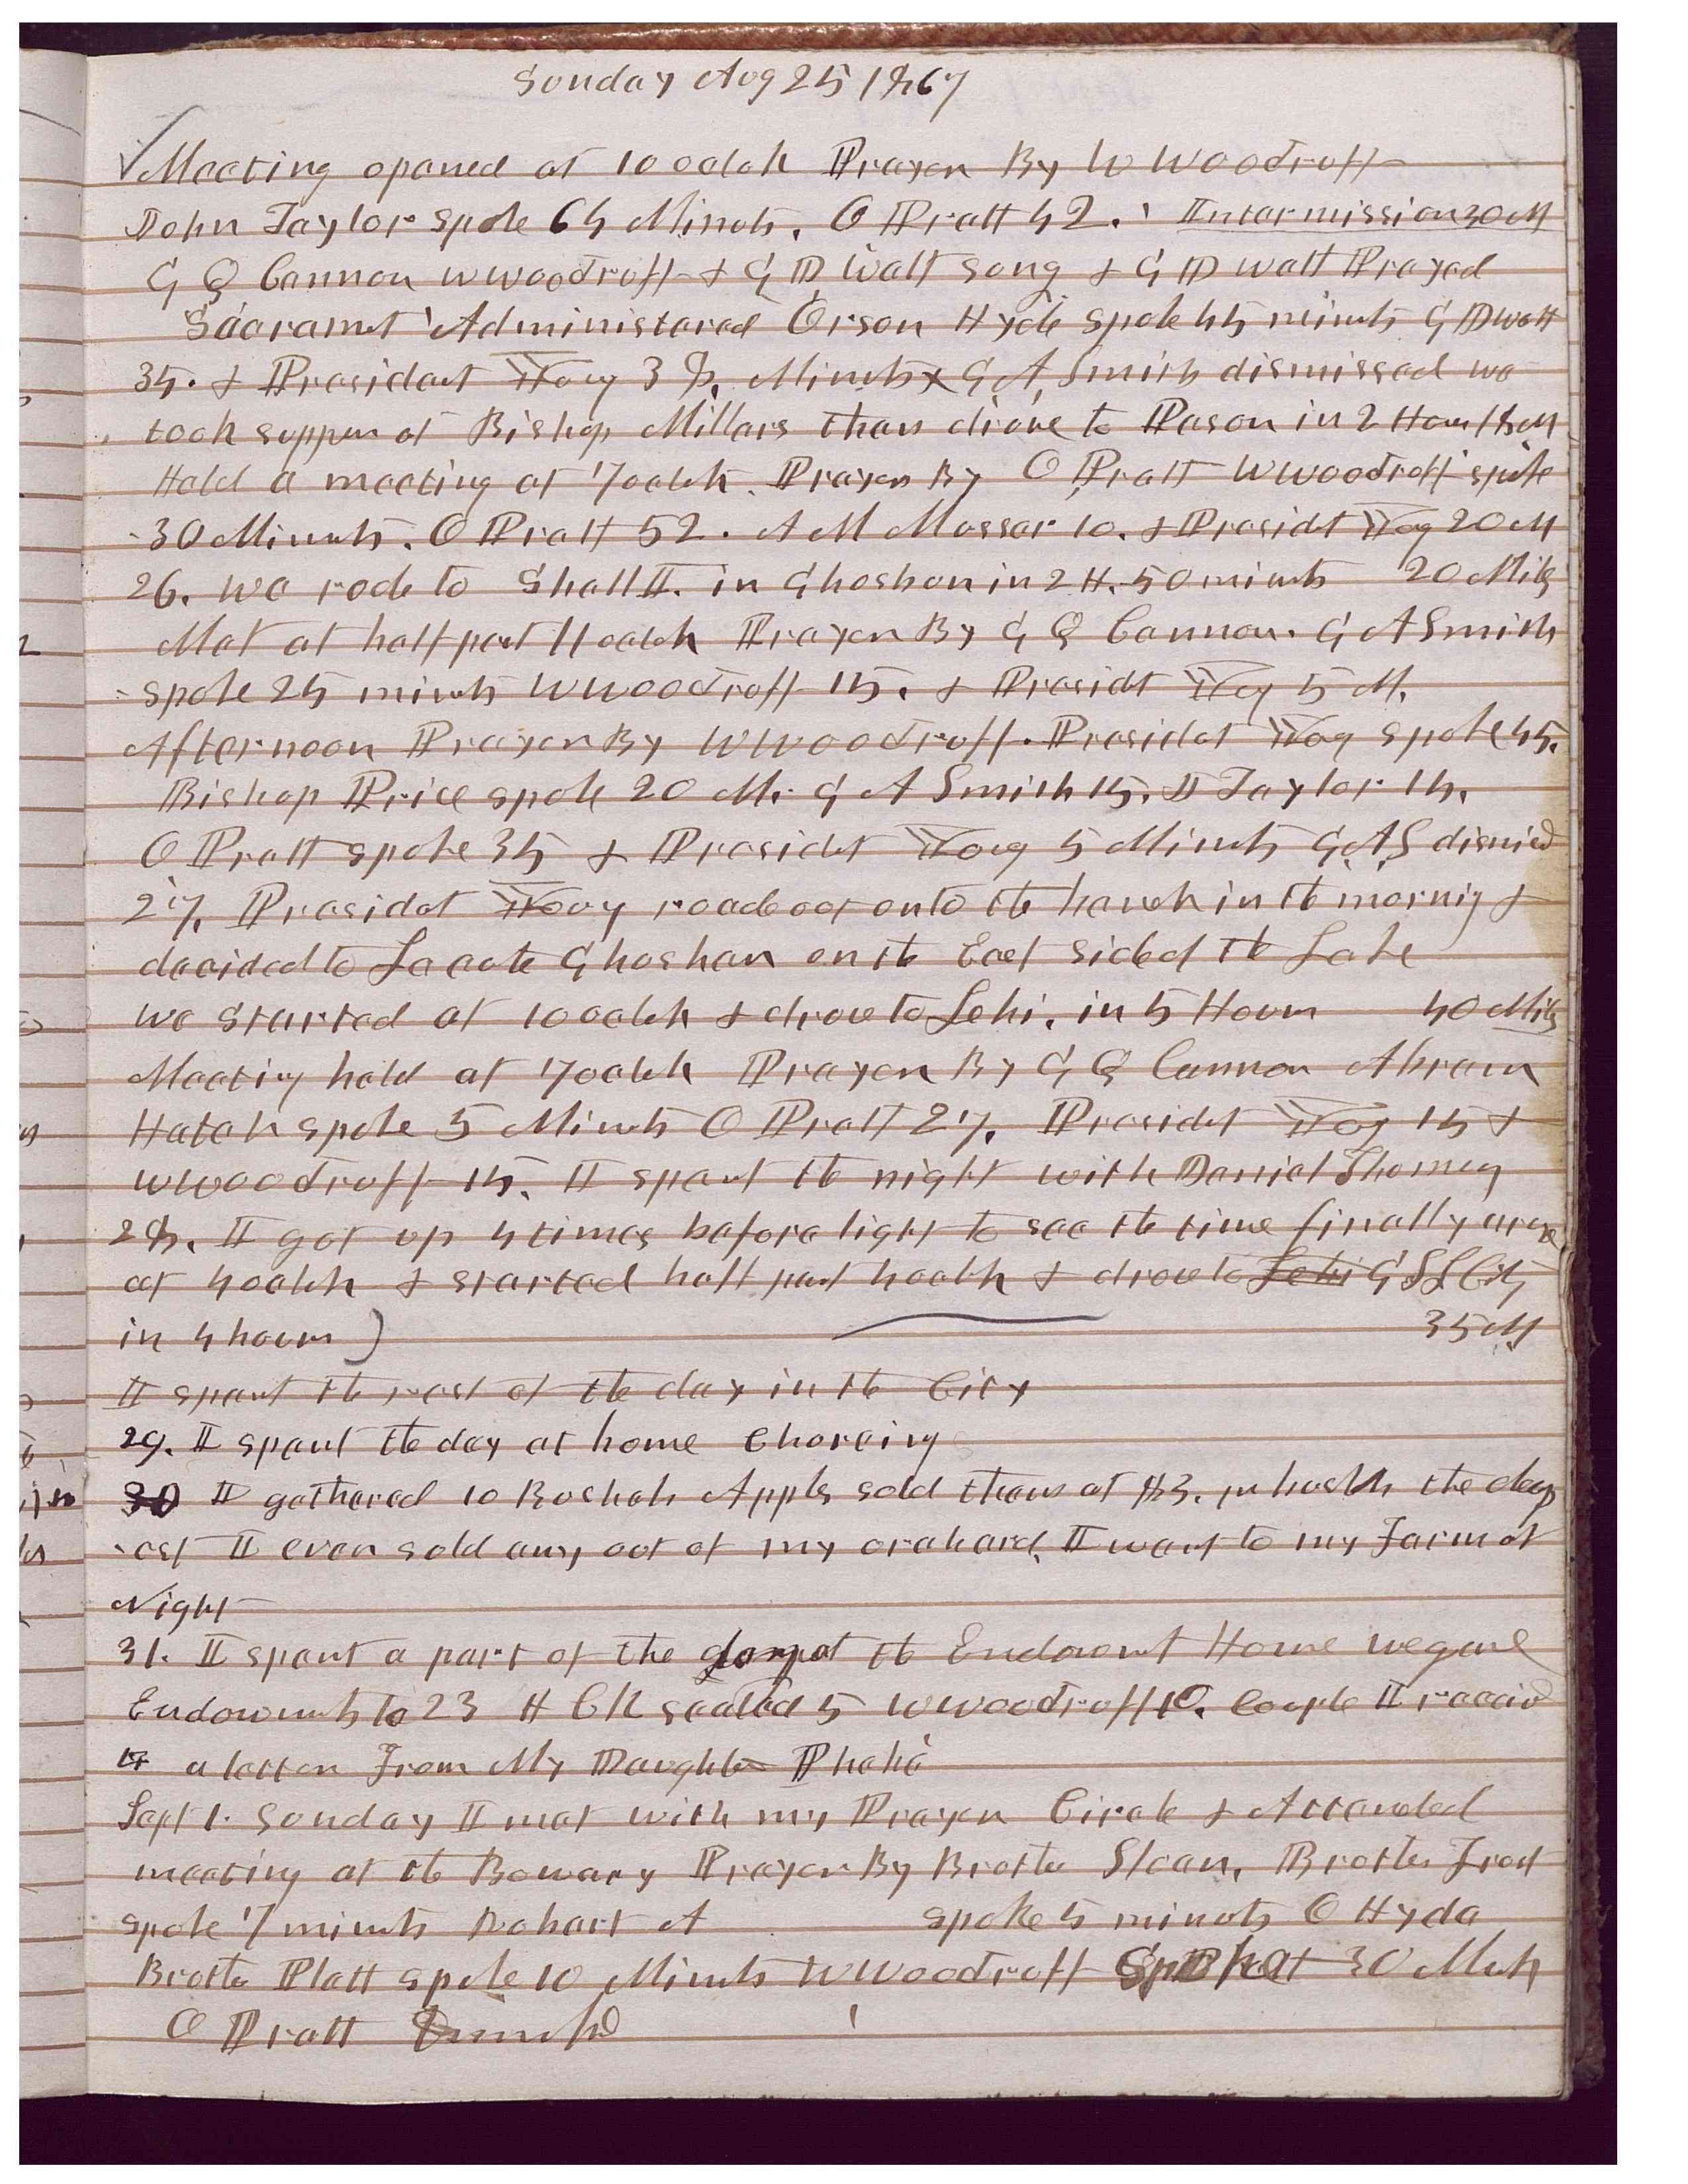 Sunday Aug 25 1867
Meeting opened at 10 oclok Prayer By W Woodruff
John Taylor spoke 64 Minuts. O Pratt 42. Intermission 30 M
G Q Cannon W Woodruff & G D Watt sung & G D Watt Prayed
Sacramet Administered Orson Hyde spoke 45 minuts G D Watt
35. & President Young 38, Minuts G A Smith dismissed we
took supper at Bishop Millers then drove to Pason in 2 Hours 18 M
Held a meeting at 7 oclok. Prayer By O Pratt W Woodruff spoke
30 Minuts. O Pratt 52. A M Musser 10. & Presidt Young 20 M
26. We rode to Shall II. in Ghoshen in 2 H. 50 minuts 20 Miles
Met at half past 11 oclok Prayer By G Q Cannon. G A Smith
spoke 25 minuts W Woodruff 15. & Presidt Young 5 M.
Afternoon Prayer By W Woodruff. Presidet Young spoke 45.
Bishop Price spoke 20 M. G A Smith 15. J Taylor 14.
O Pratt spoke 35 & Presidet Young 5 Minuts G. A. S dismisd
27, Presidet Young roade out onto the bench in the mornig &
decided to Locate Ghoshen on the East side of the Lake
we started at 10 oclok & drove to Lehi, in 5 Hours 40 Miles
Meeting held at 7 oclok Prayer By G Q Cannon Abram
Hatch spoke 5 Minuts O Pratt 27, Presidet Young 15 &
W Woodruff 15. I spent the night with Daniel Thomas
28. I got up 4 times before light to see the time finally arose
at 4 oclok & started half past 4 oclok & drove to Lehi G S L City
in 4 hours) 35 M
I spent the rest of the day in the City
29. I spent the day at home Choreing
30 I gathered 10 Bushels Apples sold them at $3. pr bushels the cheap
-est I ever sold any out of my orchard. I went to my Farm at
Night
31. I spent a part of the day at the Endowmt House we gave
Endowmets to 23 H C K sealed 5 W Woodruff 10. Couple I receivd
a letter From My Daughter Phebe
Sept 1. Sunday I met with my Prayer Circle & Attended
meeting at the Bowery Prayer By Brother Sloan, Brother Frost
spoke 7 minuts Robert A spoke 5 minuts O Hyde
Brother Platt spoke 10 Minuts W Woodruff Spoke 30 Mets
O Pratt